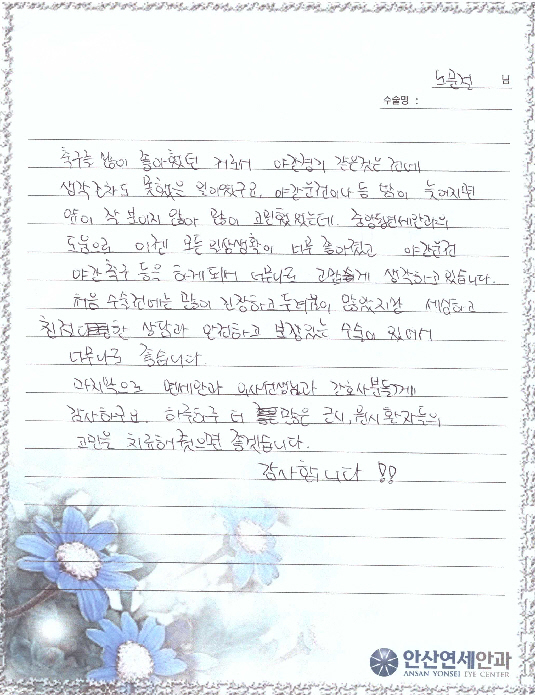 노문전 님
수술명 :
축구를 많이 좋아했던 저로서 야간경기 같은것은 전에
생각조차도 못했을 일이였구요. 야간운전이나 등 밤이 늦어지면
앞이 잘 보이지 않아 많이 고민했었는데. 중앙연세안과의
도움으로 이젠 모든 일상생활이 너무 좋아졌고 야간운전
야간축구 등을 하게되어서 너무나도 고맙게 생각하고 있습니다.
처음 수술전에는 많이 긴장하고 두려움이 많았지만 세심하고
친절한 상담과 안전하고 보장있는 수술이 있어서
너무나도 좋습니다.
마지막으로 연세안과 의사선생님과 간호사분들께
감사하구요. 하루하루 더 많은 근시, 원시 환자들의
고민을 치료해 줬으면 좋겠습니다.
감사합니다 !!
안산연세안과
ANSAN YONSEI EYE CENTER